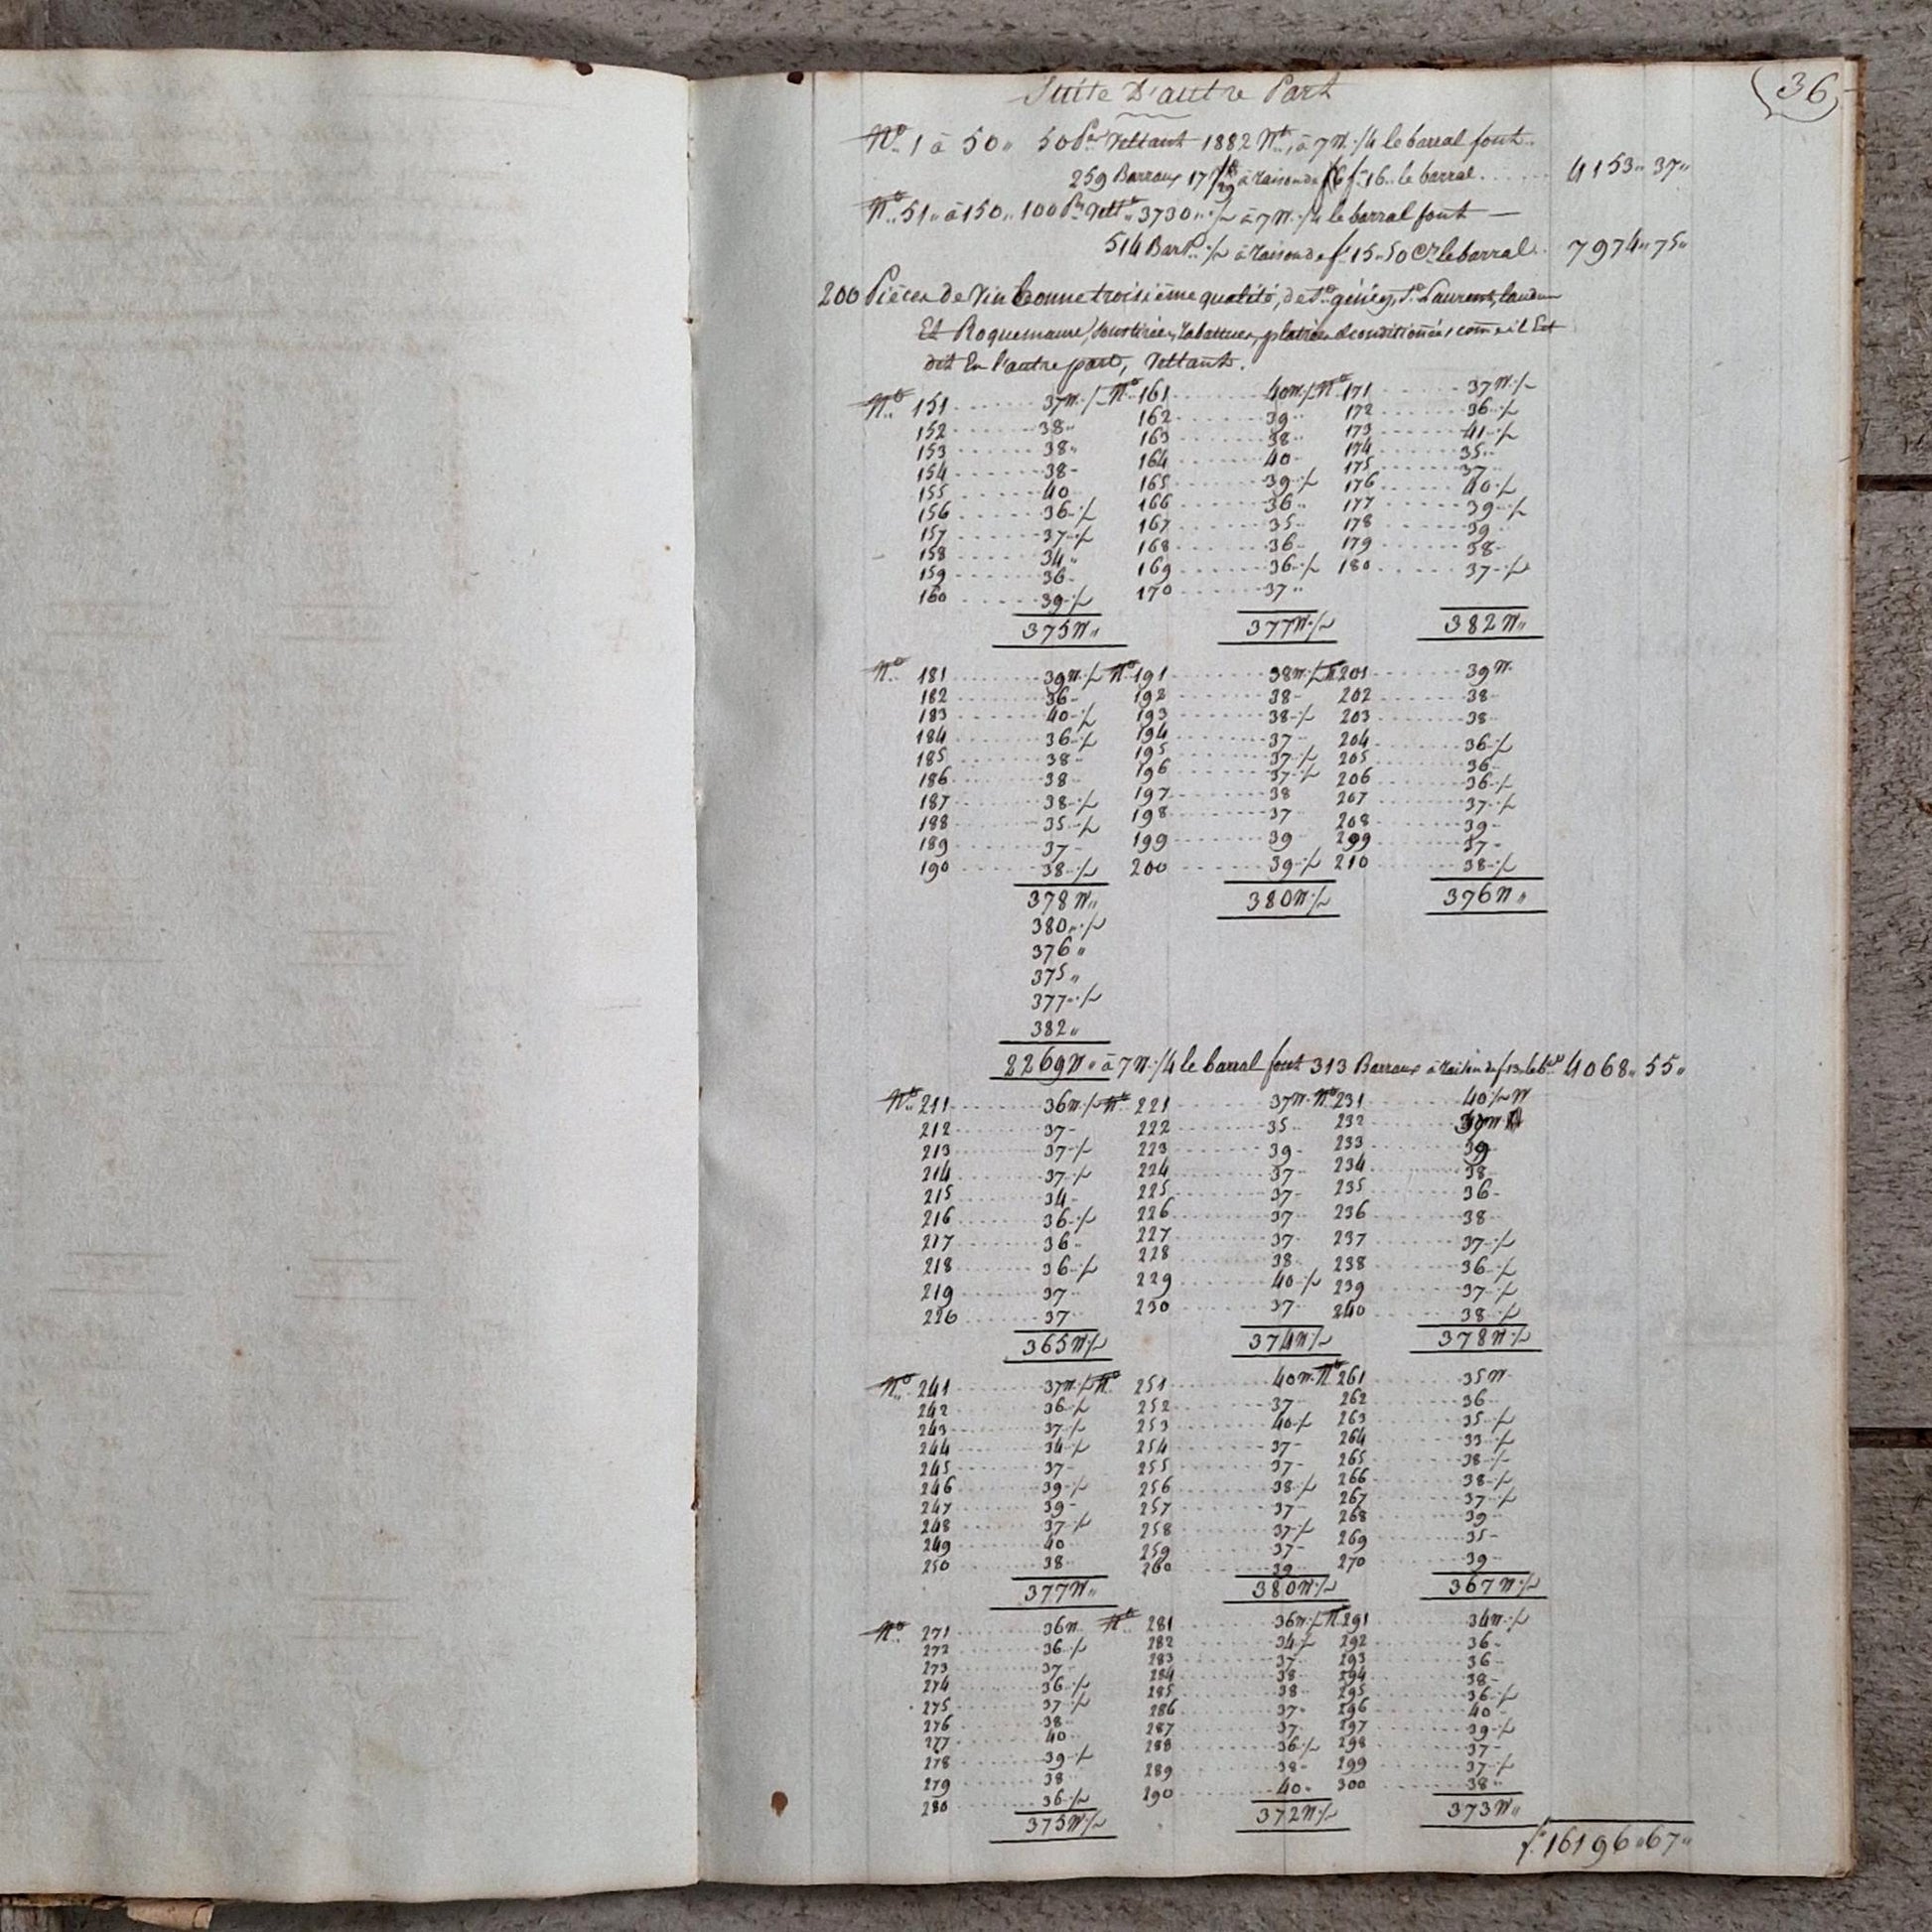 Suite D'autre Part
36
Nº 1 à 50 50 Pces Vettant 1882 Vts, à 7 V. 1/4 le barral font
259 Barraux 17/29 à raison de f 16 le barral 4153 " 37 "
Nº 51 " à 150 " 100 Pces Vettt 3730 " 1/2 à 7 V. 1/4 le barral font
514 Barx 1/2 à raison de f 15 " 50 Ces le barral 7974 " 75 "
200 Pièces de Vin bonne troisième qualité, de St géniez, St Laurent, laudun
Et Roquemaure, soustirées, rabattues, platrées & conditionnées comme il Est
dit En l'autre part, Vettant.
Nº 151 37 V. 1/2 Nº 161 40 V. 1/2 Nº 171 37 V. 1/2
152 38 " 162 39 " 172 36 " 1/2
153 38 " 163 38 " 173 41 " 1/2
154 38 - 164 40 - 174 35 "
155 40 165 39 " 1/2 175 37 "
156 36 " 1/2 166 36 " 176 40 " 1/2
157 37 " 1/2 167 35 " 177 39 " 1/2
158 34 " 168 36 - 178 39 "
159 36 - 169 36 " 1/2 179 38 -
160 39 " 1/2 170 37 " 180 37 " 1/2
375 V " 377 V. 1/2 382 V "
Nº 181 39 V. 1/2 Nº 191 38 V. 1/2 Nº 201 39 V.
182 36 - 192 38 - 202 38
183 40 " 1/2 193 38 " 1/2 203 38
184 36 " 1/2 194 37 204 36 " 1/2
185 38 " 195 37 " 1/2 205 36
186 38 196 37 " 1/2 206 36 " 1/2
187 38 " 1/2 197 38 207 37 " 1/2
188 35 " 1/2 198 37 208 39 -
189 37 - 199 39 299 37 -
190 38 " 1/2 200 39 " 1/2 210 38 " 1/2
378 V " 380 V. 1/2 376 V "
380 " 1/2
376 "
375 "
377 " 1/2
382 "
2269 V " à 7 V. 1/4 le barral font 313 Barraux à raison de f 13 le bal 4068 " 55 "
Nº 211 36 V. 1/2 Nº 221 37 V. Nº 231 40 1/2 V
212 37 - 222 35 " 232
213 37 " 1/2 223 39 - 233 39
214 37 " 1/2 224 37 - 234 38
215 34 - 225 37 - 235 36 -
216 36 " 1/2 226 37 " 236 38
217 36 " 227 37 " 237 37 " 1/2
218 36 " 1/2 228 38 238 36 " 1/2
219 37 229 40 " 1/2 239 37 " 1/2
220 37 230 37 240 38 " 1/2
365 V. 1/2 374 V. 1/2 378 V. 1/2
Nº 241 37 V. 1/2 Nº 251 40 V. Nº 261 35 V
242 36 " 1/2 252 37 262 36
243 37 " 1/2 253 40 " 1/2 263 35 " 1/2
244 34 " 1/2 254 37 - 264 33 " 1/2
245 37 - 255 37 - 265 38 " 1/2
246 39 " 1/2 256 38 " 1/2 266 38 " 1/2
247 39 - 257 37 - 267 37 " 1/2
248 37 " 1/2 258 37 " 1/2 268 39
249 40 259 37 - 269 35 -
250 38 260 39 270 39
377 V " 380 V. 1/2 367 V. 1/2
Nº 271 36 V. Nº 281 36 V. 1/2 Nº 291 34 V. 1/2
272 36 " 1/2 282 34 " 1/2 292 36 -
273 37 - 283 37 293 36 -
274 36 " 1/2 284 38 294 38 -
275 37 " 1/2 285 38 295 36 " 1/2
276 38 286 37 - 296 40
277 40 287 37 297 39 " 1/2
278 39 " 1/2 288 36 " 1/2 298 37 -
279 38 289 38 - 299 37 " 1/2
280 36 " 1/2 290 40 " 300 38 "
375 V. 1/2 372 V. 1/2 373 V "
f. 16196 " 67 "